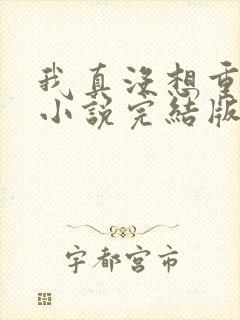 我真没想重
小說完結版
宇都宮市